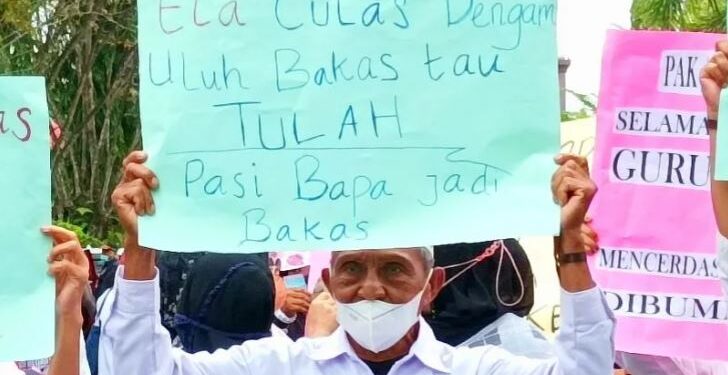 Ela Culas Dengam
Uluh Bakas tau
TULAH
Pasi Bapa jadi
Bakas
as
PAK
SELAMA
GURU
MENCERDAS
DIBUMI